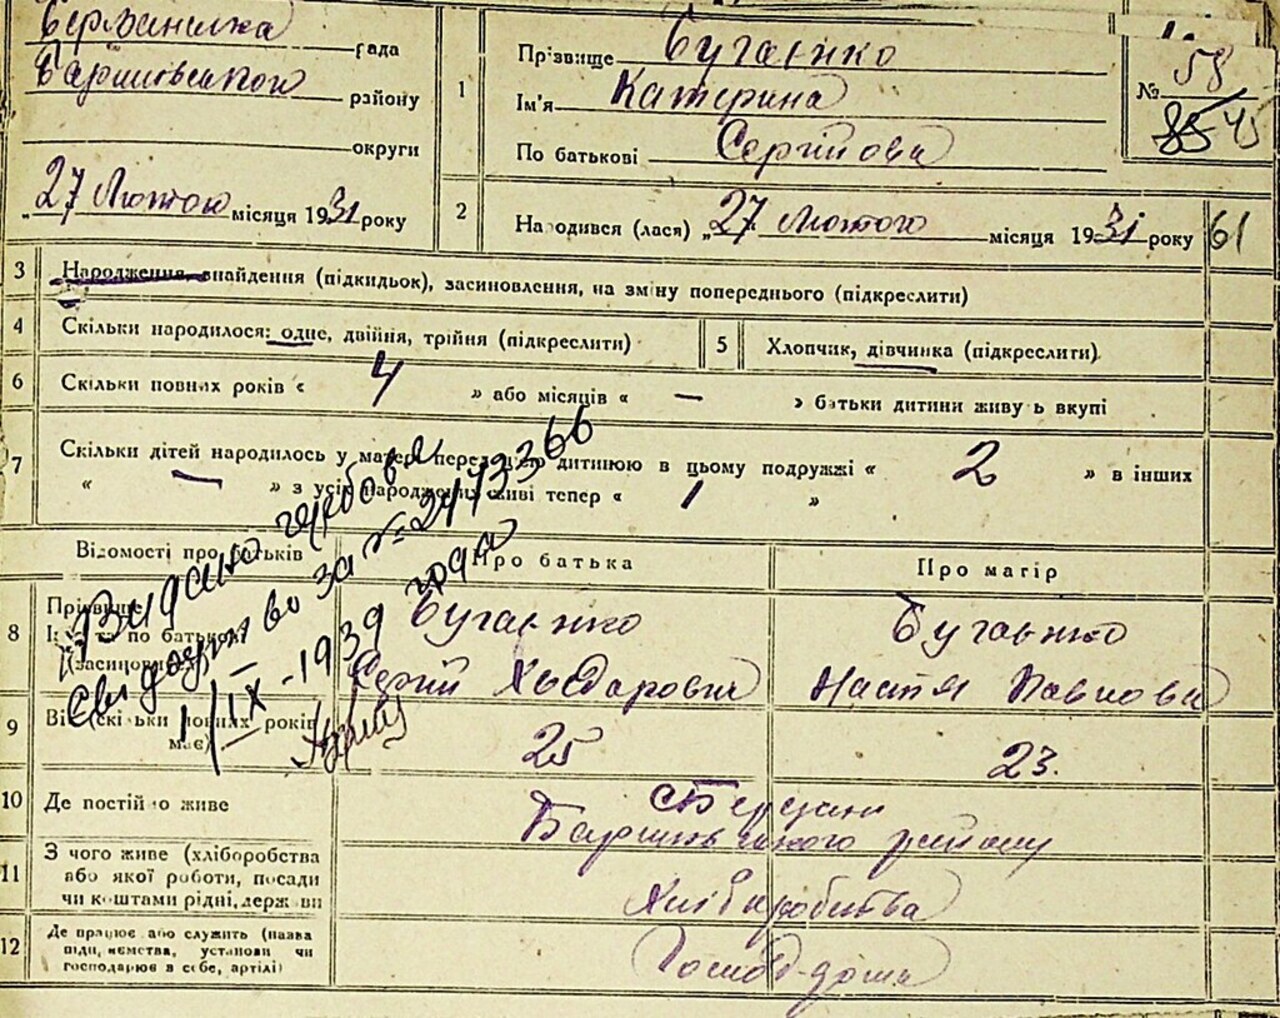 рада
Баришівського району
округи
„27 Лютого місяця 1931 року
1
Прізвище Бугаєнко
Ім'я Катерина
По батькові Сергійовна
№ 58
85 45
2
Народився (лася) „27“ Лютого місяця 1931 року
61
3 Народження, знайдення (підкидьок), засиновлення, на зміну попереднього (підкреслити)
4 Скільки народилося: одне, двійня, трійня (підкреслити)
5 Хлопчик, дівчинка (підкреслити)
6 Скільки повних років « 4 » або місяців « — » батьки дитини живуть вкупі
7 Скільки дітей народилось у матері перед цією дитиною в цьому подружжі « 2 » в інших
« — » з усіх народжених живі тепер « 1 »
Видано
Свидоцтво за № 2473366
1/IX - 1939 года
Відомості про батьків
Про батька
Про матір
8 Прізвище
Ім'я та по батькові
(засиновит.)
Бугаєнко
Сергій Хведорович
Бугаєнко
Настя Павловна
9 Вік (скільки повних років
має)
25
23.
10 Де постійно живе
с Березані
Баришівського району
11 З чого живе (хліборобства
або якої роботи, посади
чи коштами рідні, держави
Хліборобства
12 Де працює або служить (назва
підприємства, установи чи
господарює в себе, артілі)
Господ. дома